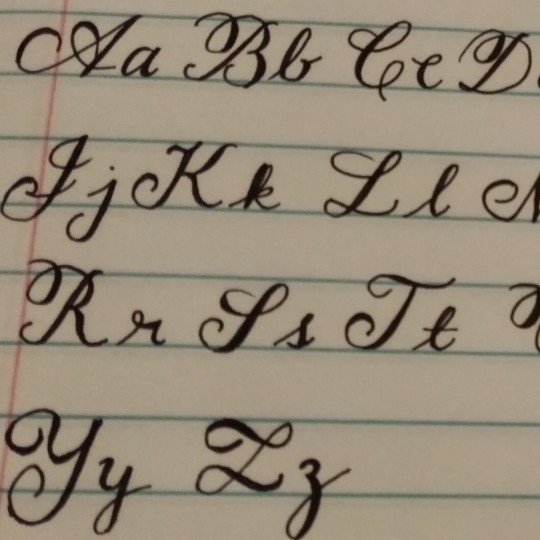 Aa Bb Cc D
Jj Kk Ll
Rr Ss Tt
Yy Zz